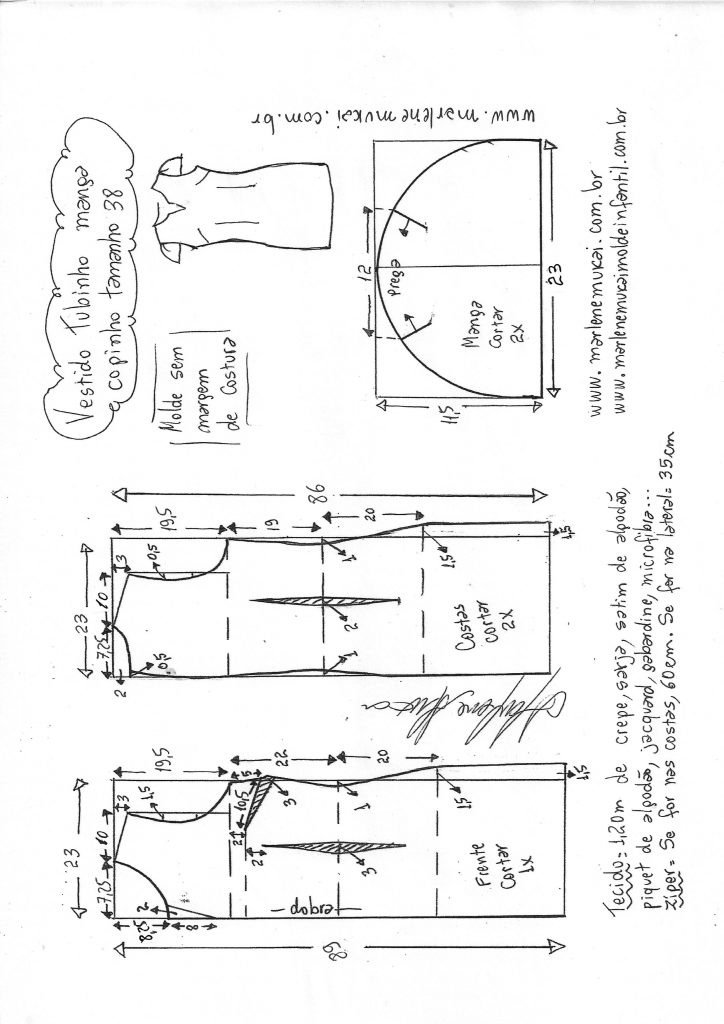 Vestido Tubinho manga
copinho tamanho 38
Molde sem
margem
de Costura
www.marlenemukai.com.br
12
Prega
Manga
Cortar
2x
11,5
23
www.marlenemukai.com.br
www.marlenemukaimoldeinfantil.com.br
23
7,25
10
3
2
0,5
0,5
19,5
19
20
86
1
1
2
1,5
1,5
Costas
Cortar
2X
23
7,25
10
3
1,5
19,5
22
20
5
10,5
2
2
3
3
1
1,5
1,5
2
8,25
8
89
dobra
Frente
Cortar
1x
Tecido= 1,20m de crepe, sarja, satim de algodão,
piquet de algodão, jacquard, gabardine, microfibra...
Zíper= Se for nas costas, 60cm. Se for na lateral= 35cm